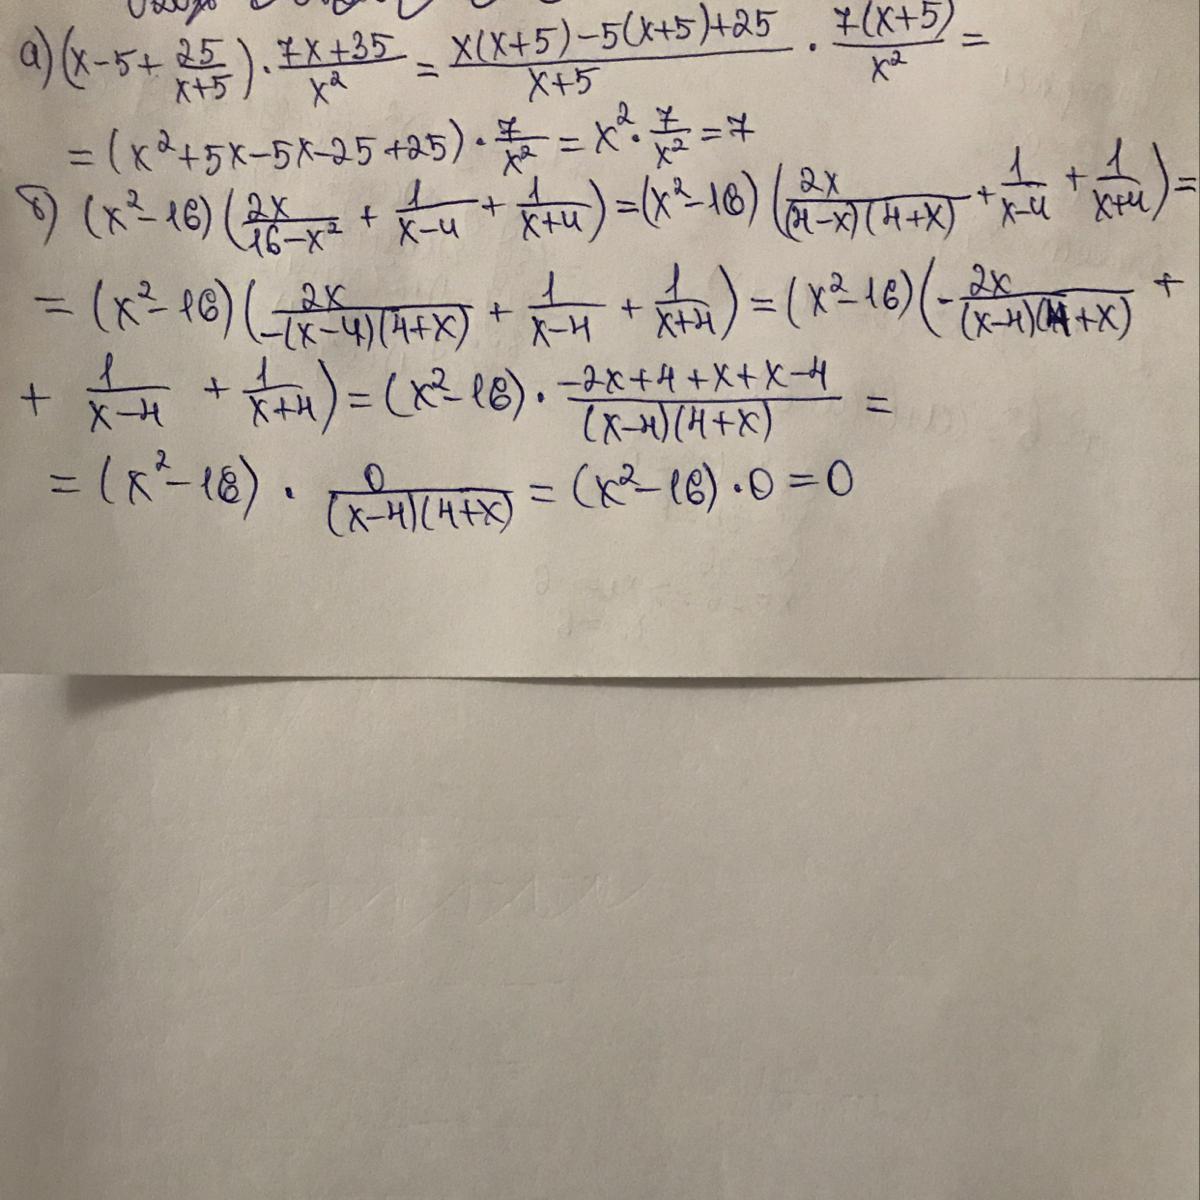 а) (x-5+ 25/(x+5)) · (7x+35)/x² = (x(x+5)-5(x+5)+25)/(x+5) · 7(x+5)/x² =
= (x²+5x-5x-25+25) · 7/x² = x² · 7/x² = 7
б) (x²-16)(2x/(16-x²) + 1/(x-4) + 1/(x+4)) = (x²-16)(2x/((4-x)(4+x)) + 1/(x-4) + 1/(x+4)) =
= (x²-16)(2x/(-(x-4)(4+x)) + 1/(x-4) + 1/(x+4)) = (x²-16)(- 2x/((x-4)(4+x)) +
+ 1/(x-4) + 1/(x+4)) = (x²-16) · (-2x+4+x+x-4)/((x-4)(4+x)) =
= (x²-16) · 0/((x-4)(4+x)) = (x²-16) · 0 = 0